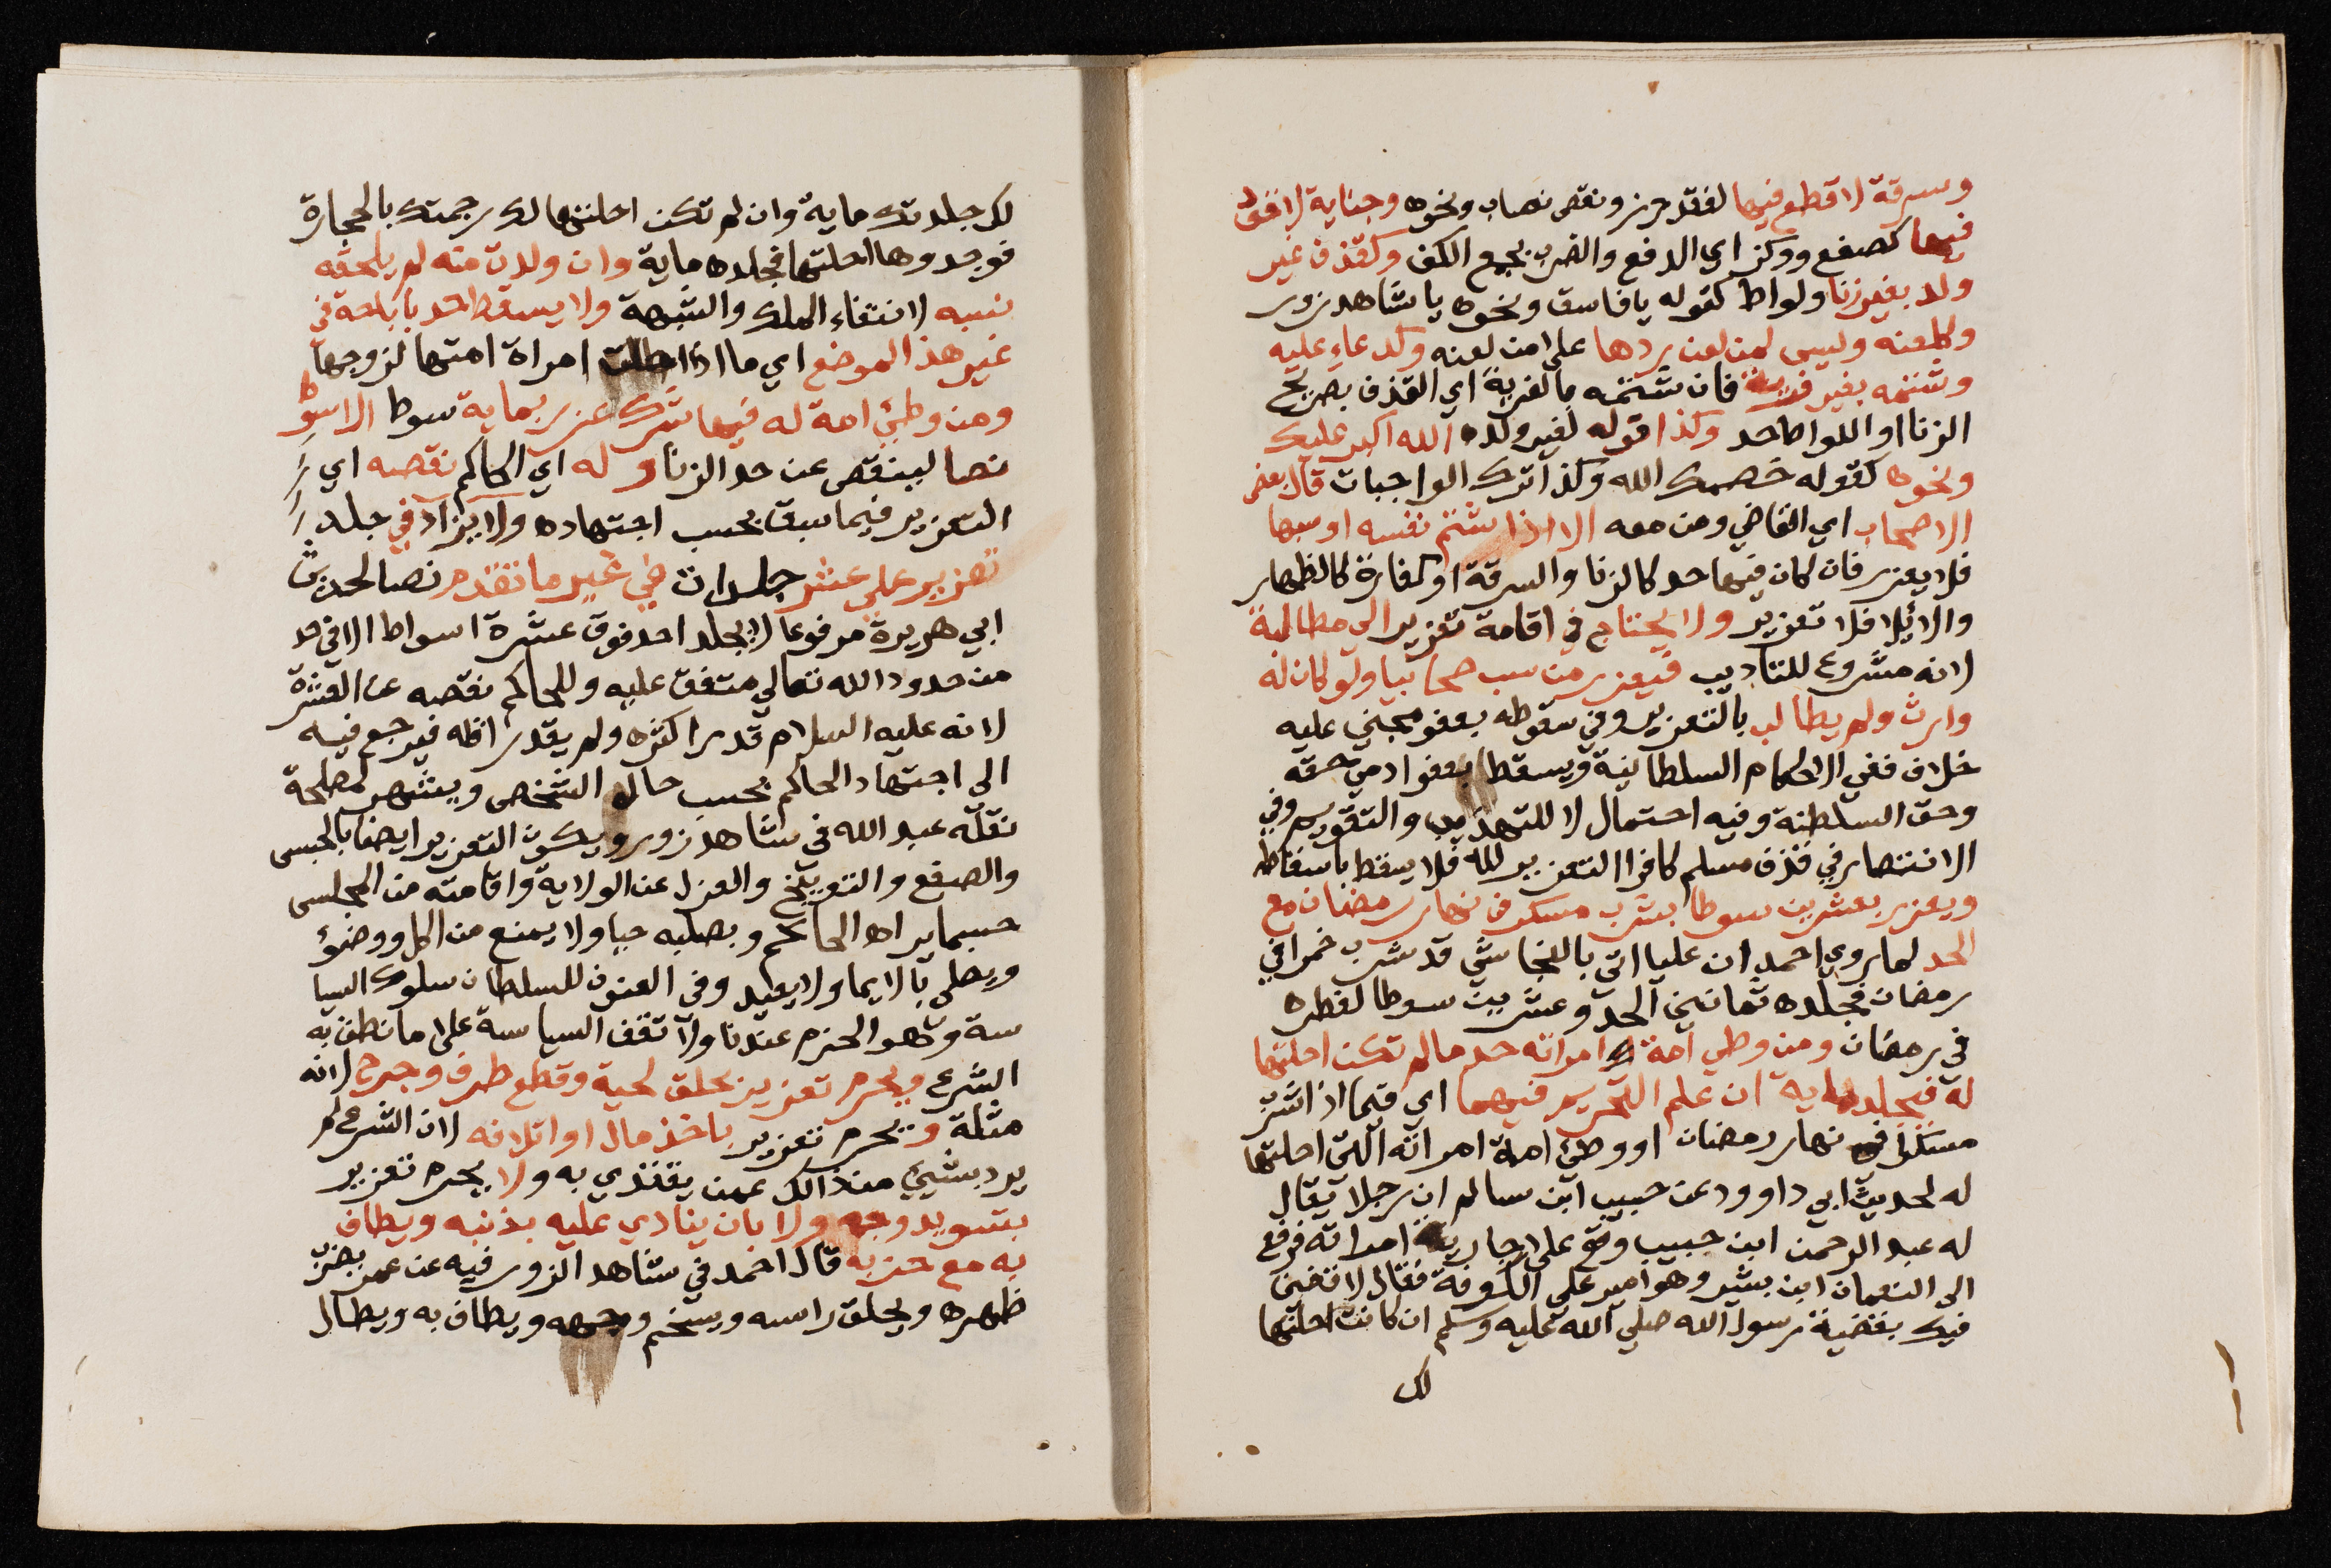 وسرقة لا قطع فيها لفقد حرز ونقص نصاب ونحوه وجناية لا قود
فيها كصفع ووكز اي الدفع والضرب بجمع الكف وكقذف غير
ولد بغير زنا ولواط كقوله يا فاسق ونحوه يا شاهد زور
وكلعنه وليس لمن لعن ردها على من لعنه وكدعاء عليه
وشتمه بغير فرية فان شتمه بالفرية اي القذف بصريح
الزنا او اللواط حد وكذا قوله لغير ولده الله اكبر عليك
ونحوه كقوله خصمك الله وكذا ترك الواجبات قال بعض
الاصحاب اي القاضي ومن معه الا اذا شتم نفسه او سبها
فلا يعزر فان كان فيها حد كالزنا والسرقة او كفارة كالظهار
والائيلا فلا تعزير ولا يحتاج في اقامة تعزير الي مطالبة
لانه مشروع للتاديب فيعزر من سب صحابيا ولو كان له
وارث ولم يطالب بالتعزير وفي سقوطه بعفو مجني عليه
خلاف ففي الاحكام السلطانية ويسقط بعفو ادمي حقه
وحق السلطنة وفيه احتمال لا للتهذيب والتقويم وفي
الانتصار في قذف مسلم كافرا التعزير لله فلا يسقط باسقاطه
ويعزر بعشرين سوطا بشرب مسكر في نهار رمضان مع
الحد لما روي احمد ان عليا اتي بالنجاشي قد شرب خمرا في
رمضان فجلده ثمانين الحد وعشرين سوطا لفطره
في رمضان ومن وطي امة امراته حد ما لم تكن احلتها
له فيجلد ماية ان علم التحريم فيهما اي فيما اذا شرب
مسكرا في نهار رمضان او وطئ امة امراته التي احلتها
له لحديث ابي داوود عن حبيب ابن سالم ان رجلا يقال
له عبد الرحمن ابن حبيب وقع على جارية امراته فرفع
الى النعمان ابن بشير وهو امير على الكوفة فقال لاقضين
فيك بقضية رسول الله صلي الله عليه وسلم ان كانت احلتها
لك
لك جلدتك ماية وان لم تكن احلتها لك رجمتك بالحجارة
فوجدوها احلتها فجلده ماية وان ولدت منه لم يلحقه
نسبه لانتفاء الملك والشبهة ولا يسقط حد باباحة في
غير هذا الموضع اي ما اذا احلت امراة امتها لزوجها
ومن وطئ امة له فيها شرك عزر بماية سوط الا سوط
نصا لينقص عن حد الزنا وله اي الحاكم نقصه اي
التعزير فيما سبق بحسب اجتهاده ولا يزاد في جلد
تعزير على عشر جلدات في غير ما تقدم نصا لحديث
ابي هريرة مرفوعا لا يجلد احد فوق عشرة اسواط الا في حد
من حدود الله تعالي متفق عليه وللحاكم نقصه عن العشرة
لانه عليه السلام قدر اكثره ولم يقدر اقله فيرجع فيه
الى اجتهاد الحاكم بحسب حال الشخص ويشهر لمصلحة
نقله عبد الله في شاهد زور ويكون التعزير ايضا بالحبس
والصفع والتوبيخ والعزل عن الولاية واقامته من المجلس
حسبما يراه الحاكم وبصلبه حيا ولا يمنع من اكل ووضوء
ويصلي بالايما ولا يعيد وفي الفنون للسلطان سلوك السيا
سة وهو الحزم عندنا ولا تقف السياسة على ما نطق به
الشرع ويحرم تعزير بحلق لحية وقطع طرف وجرح لانه
مثلة ويحرم تعزير باخذ مال او اتلافه لان الشرع لم
يرد بشيئ من ذالك عمن يقتدي به ولا يحرم تعزير
بتسويد وجه ولا بان ينادي عليه بذنبه ويطاف
به مع ضربه قال احمد في شاهد الزور فيه عن عمر يضرب
ظهره ويحلق راسه ويسخم وجهه ويطاف به ويطال